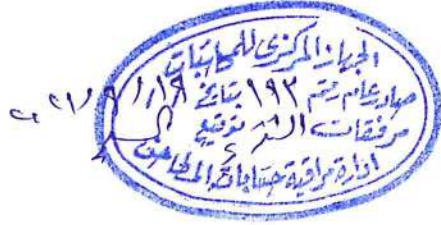 الجهاز المركزى للمحاسبات
صادر عام رقم ١٩٢ بتاريخ
مرفقات توقيع
ادارة مراقبة حسابات المطاحن